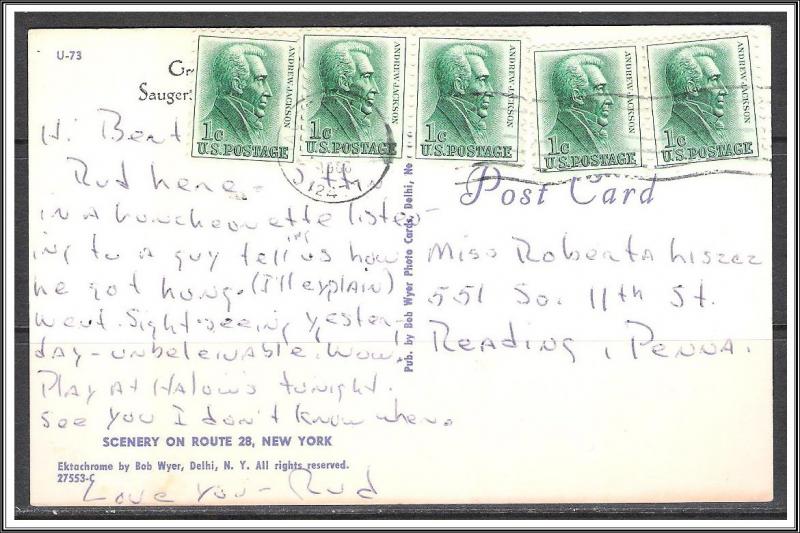 U-73
Gr
Sauger
ANDREW JACKSON
1c
U.S. POSTAGE
ANDREW JACKSON
1c
U.S. POSTAGE
ANDREW JACKSON
1c
U.S. POSTAGE
ANDREW JACKSON
1c
U.S. POSTAGE
ANDREW JACKSON
1c
U.S. POSTAGE
Post Card
Hi Bert
Rud here -
in a luncheonette listen-
ing to a guy telling us how
he got hung. (I'll explain)
Went sight-seeing yester,
day - unbeleivable. Wow,
Play at Halows tonight.
See you I don't know when.
SCENERY ON ROUTE 28, NEW YORK
Ektachrome by Bob Wyer, Delhi, N. Y. All rights reserved.
27553-C
Love you - Rud
Pub. by Bob Wyer Photo Cards, Delhi, Ne
Miss Roberta Liszcz
551 So. 11th St.
Reading, Penna.